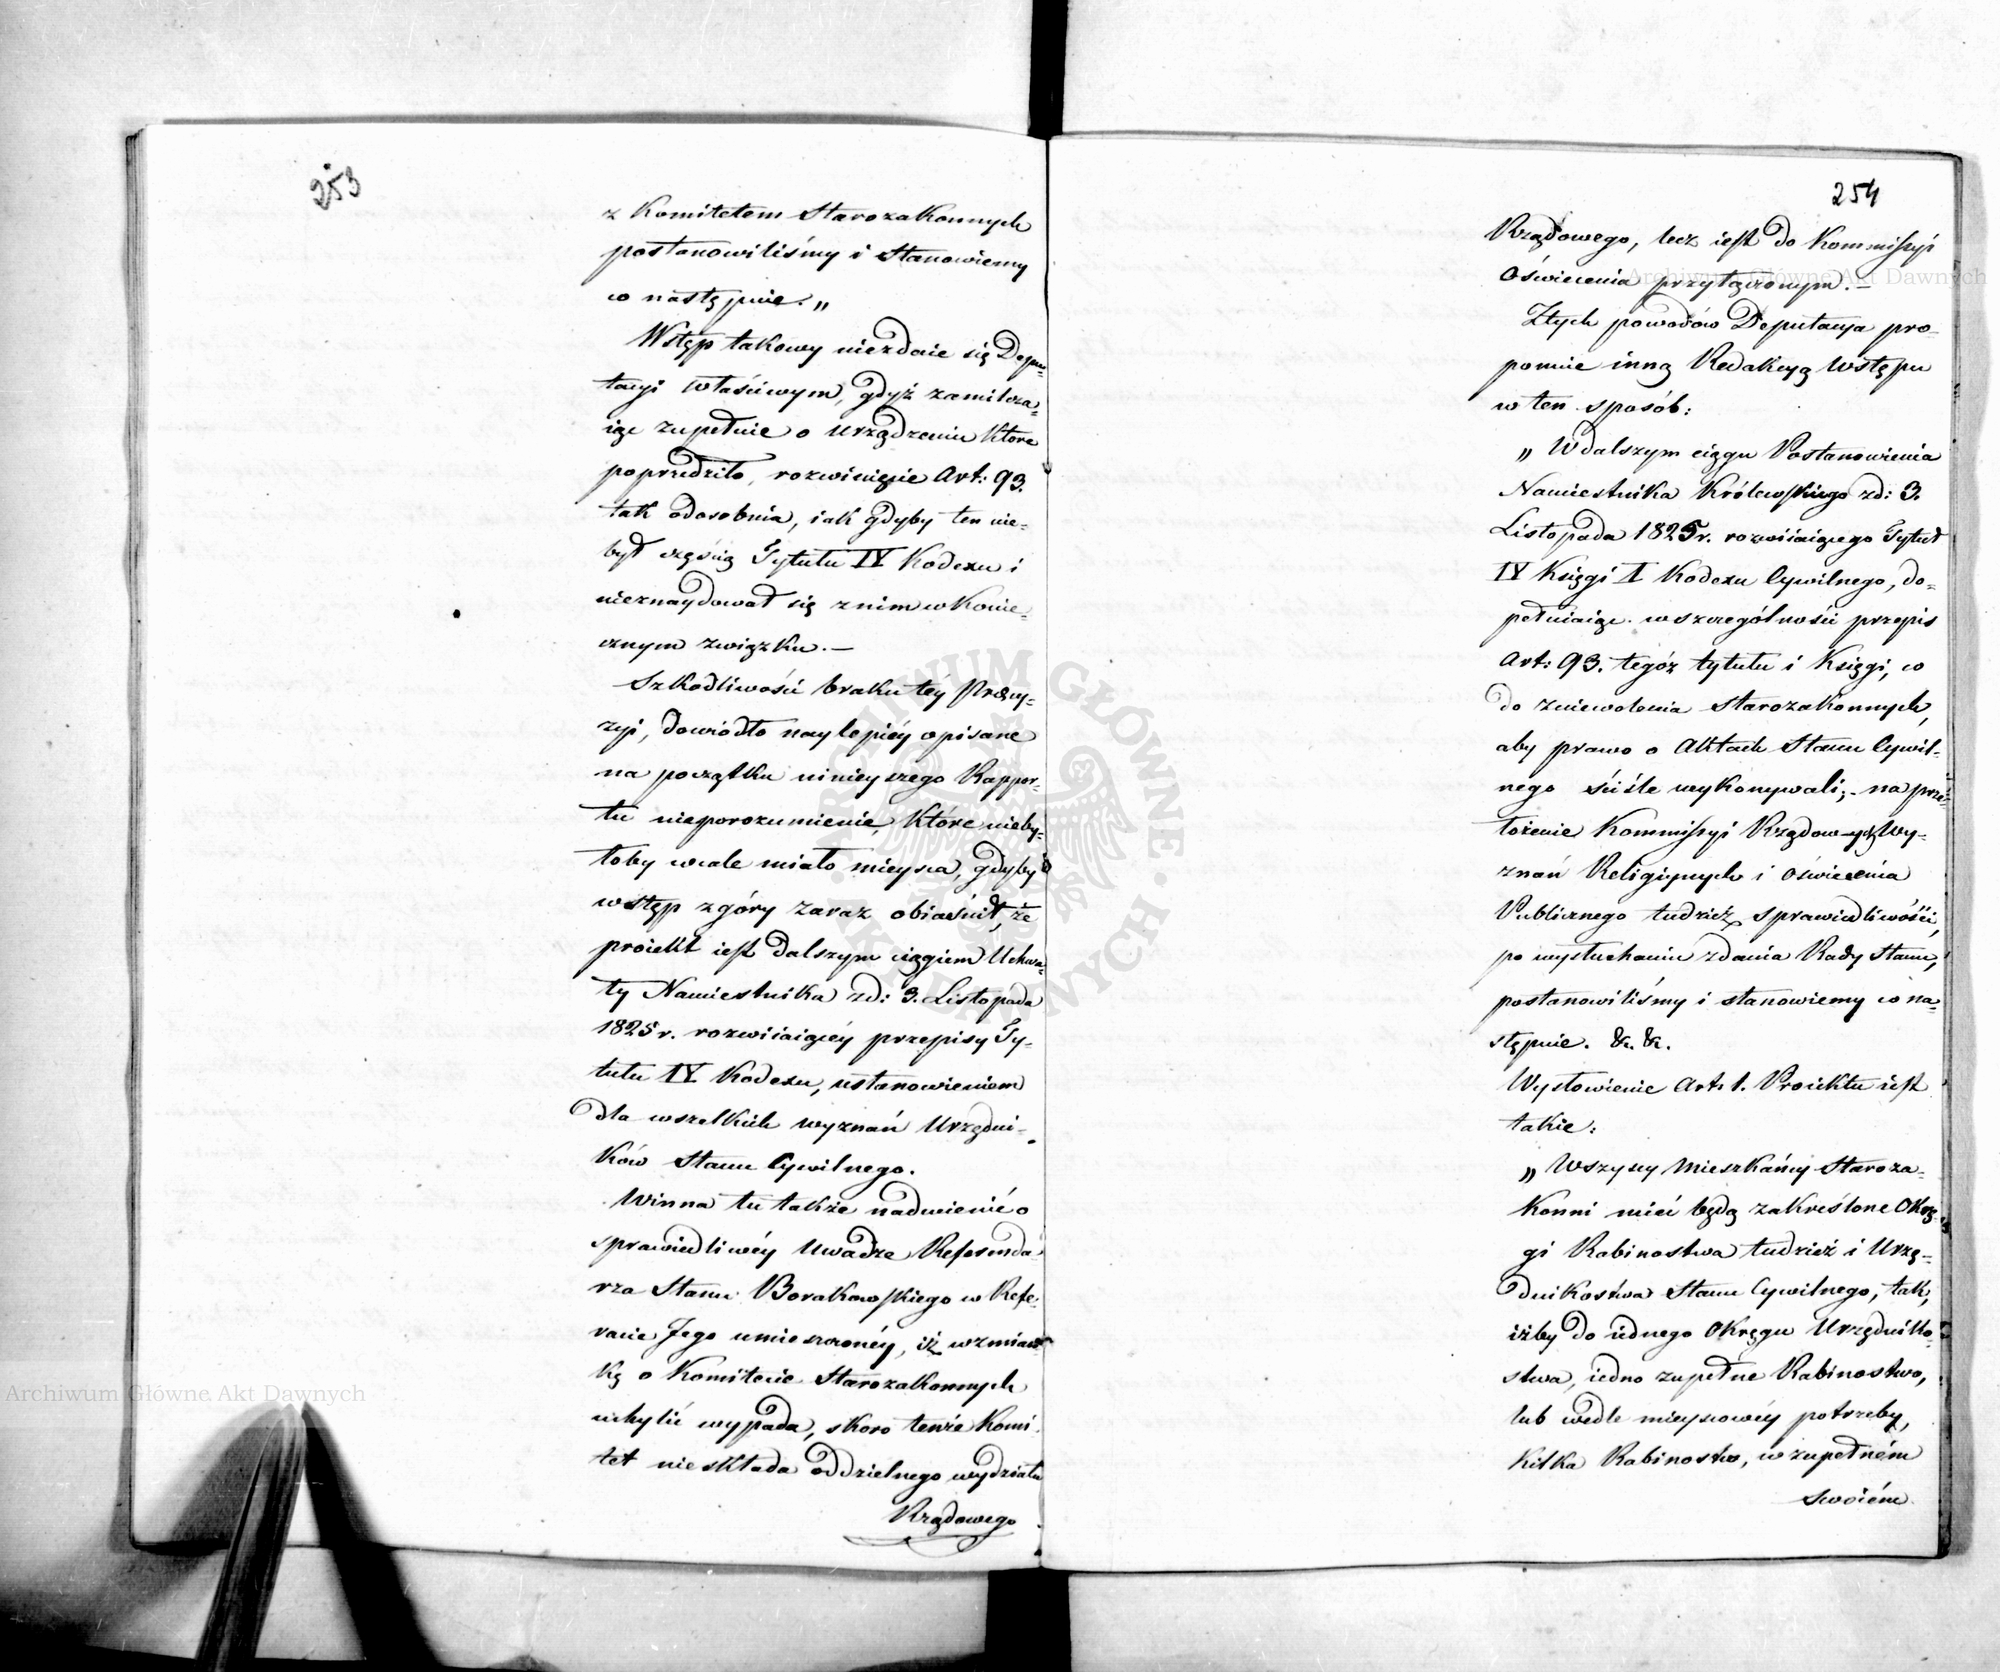 253
z Komitetem Starozakonnych
postanowiliśmy i Stanowiemy
co następuie."
Wstęp takowy niezdaie się Depu=
tacyi właściwym, gdyż zamilcza=
iąc zupełnie o urządzeniu które
poprzedziło, rozwinięcie Art: 93.
tak odosobnia, iak gdyby ten nie=
był częścią Tytułu IV Kodexu i
nieznaydował się z nim w konie=
cznym związku. —
Szkodliwość braku téy Precy=
zyi, dowiodło naylepiéy opisane
na początku ninieyszego Rappor=
tu nieporozumienie, które nieby=
łoby wcale miało mieysca, gdyby
wstęp z góry zaraz obiaśnił, że
proiekt iest dalszym ciągiem Uchwa=
ły Namiestnika zd: 3. Listopada
1825 r. rozwiiaiącéy przepisy Ty=
tułu IV Kodexu, ustanowieniem
dla wszelkich wyznań Urzędni=
ków Stanu Cywilnego.
Winna tu także nadmienić o
sprawiedliwéy uwadze Referenda=
rza Stanu Borakowskiego w Refe=
racie Jego umieszczonéy, iż wzmian=
kę o Komitecie Starozakonnych
uchylić wypada, skoro tenże Komi=
tet nieskłada oddzielnego wydziału
Rządowego
254
Rządowego, lecz iest do Kommissyi
Oświecenia przyłączonym. —
Ztych powodów Deputacya pro=
ponuie inną Redakcyą Wstępu
w ten sposób:
„Wdalszym ciągu Postanowienia
Namiestnika Królewskiego zd: 3.
Listopada 1825 r. rozwiiaiącego Tytuł
IV Księgi I Kodexu Cywilnego, do=
pełniaiąc wszczególności przepis
Art: 93. tegóż tytułu i Księgi, co
do zniewolenia Starozakonnych,
aby prawo o Aktach Stanu Cywil=
nego ściśle wykonywali; na prze=
łożenie Kommissyi Rządowych Wy=
znań Religiynych i Oświecenia
Publicznego tudzież sprawiedliwości,
po wysłuchaniu zdania Rady Stanu,
postanowiliśmy i stanowiemy co na=
stępuie. &. &.
Wysłowienie Art: 1. Proiektu iest
takie:
„Wszyscy mieszkańcy Staroza=
konni mieć będą zakreślone Okrę=
gi Rabinostwa tudzież i Urzę=
dnikostwa Stanu Cywilnego, tak,
iżby do iednego Okręgu Urzędniko=
stwa, iedno zupełne Rabinostwo,
lub wedle mieyscowéy potrzeby,
kilka Rabinostw, w zupełném
swoiém
Archiwum Główne Akt Dawnych
Archiwum Główne Akt Dawnych
ARCHIWUM GŁÓWNE AKT DAWNYCH